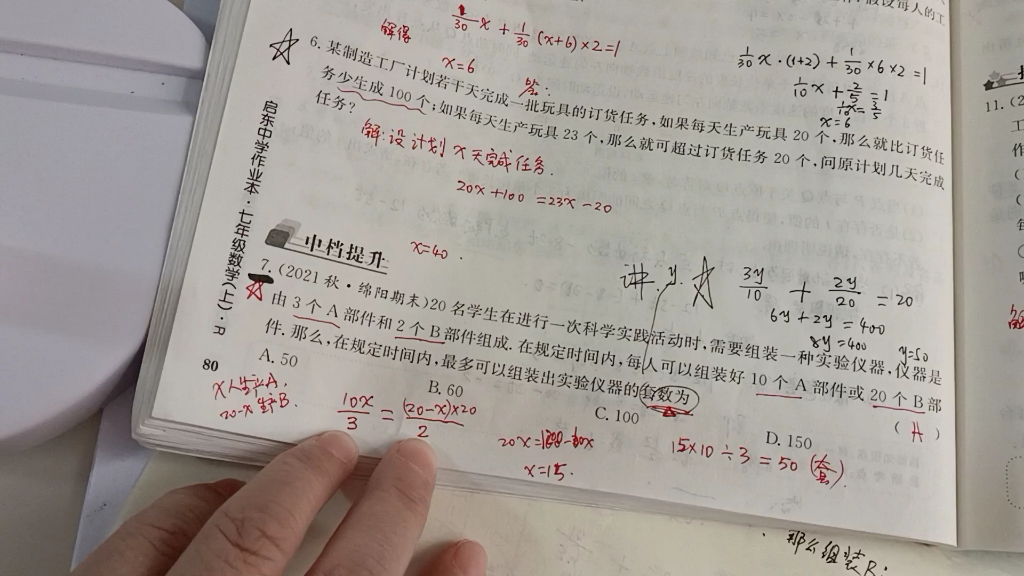 假设每人的工
1/30 x + 1/30 (x+6)×2=1
解得
x=6
答:
1/30 x·(1+2) + 1/30 ×6×2=1
1/10 x + 2/5 =1
1/10 x = 3/5
x=6
6. 某制造工厂计划若干天完成一批玩具的订货任务,如果每天生产玩具 20 个,那么就比订货任
务少生成 100 个;如果每天生产玩具 23 个,那么就可超过订货任务 20 个,问原计划几天完成
任务?
解:设计划 x 天完成任务.
20x+100=23x-20
x=40.
启东中学作业本·七年级数学(上)·R
中档提升
讲 y. ☆
3y/10 + 2y/20 =20
6y+2y=400
8y=400
y=50
7. (2021 秋·绵阳期末)20 名学生在进行一次科学实践活动时,需要组装一种实验仪器,仪器是
由 3 个 A 部件和 2 个 B 部件组成. 在规定时间内,每人可以组装好 10 个 A 部件或 20 个 B 部
件. 那么,在规定时间内,最多可以组装出实验仪器的套数为
( A )
A. 50
B. 60
C. 100
D. 150
80
x人生产A.
20-x 生产B.
10x/3 = (20-x)×20/2
x=15.
15×10÷3=50(套).
11. (2
那么组装B: